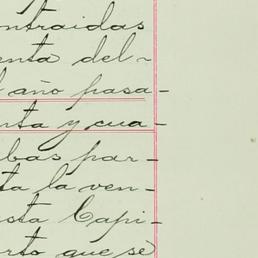 ontraidas
enta del-
l año pasa-
nta y cua-
bas par-
ta la ven-
sta Capi-
rto que se